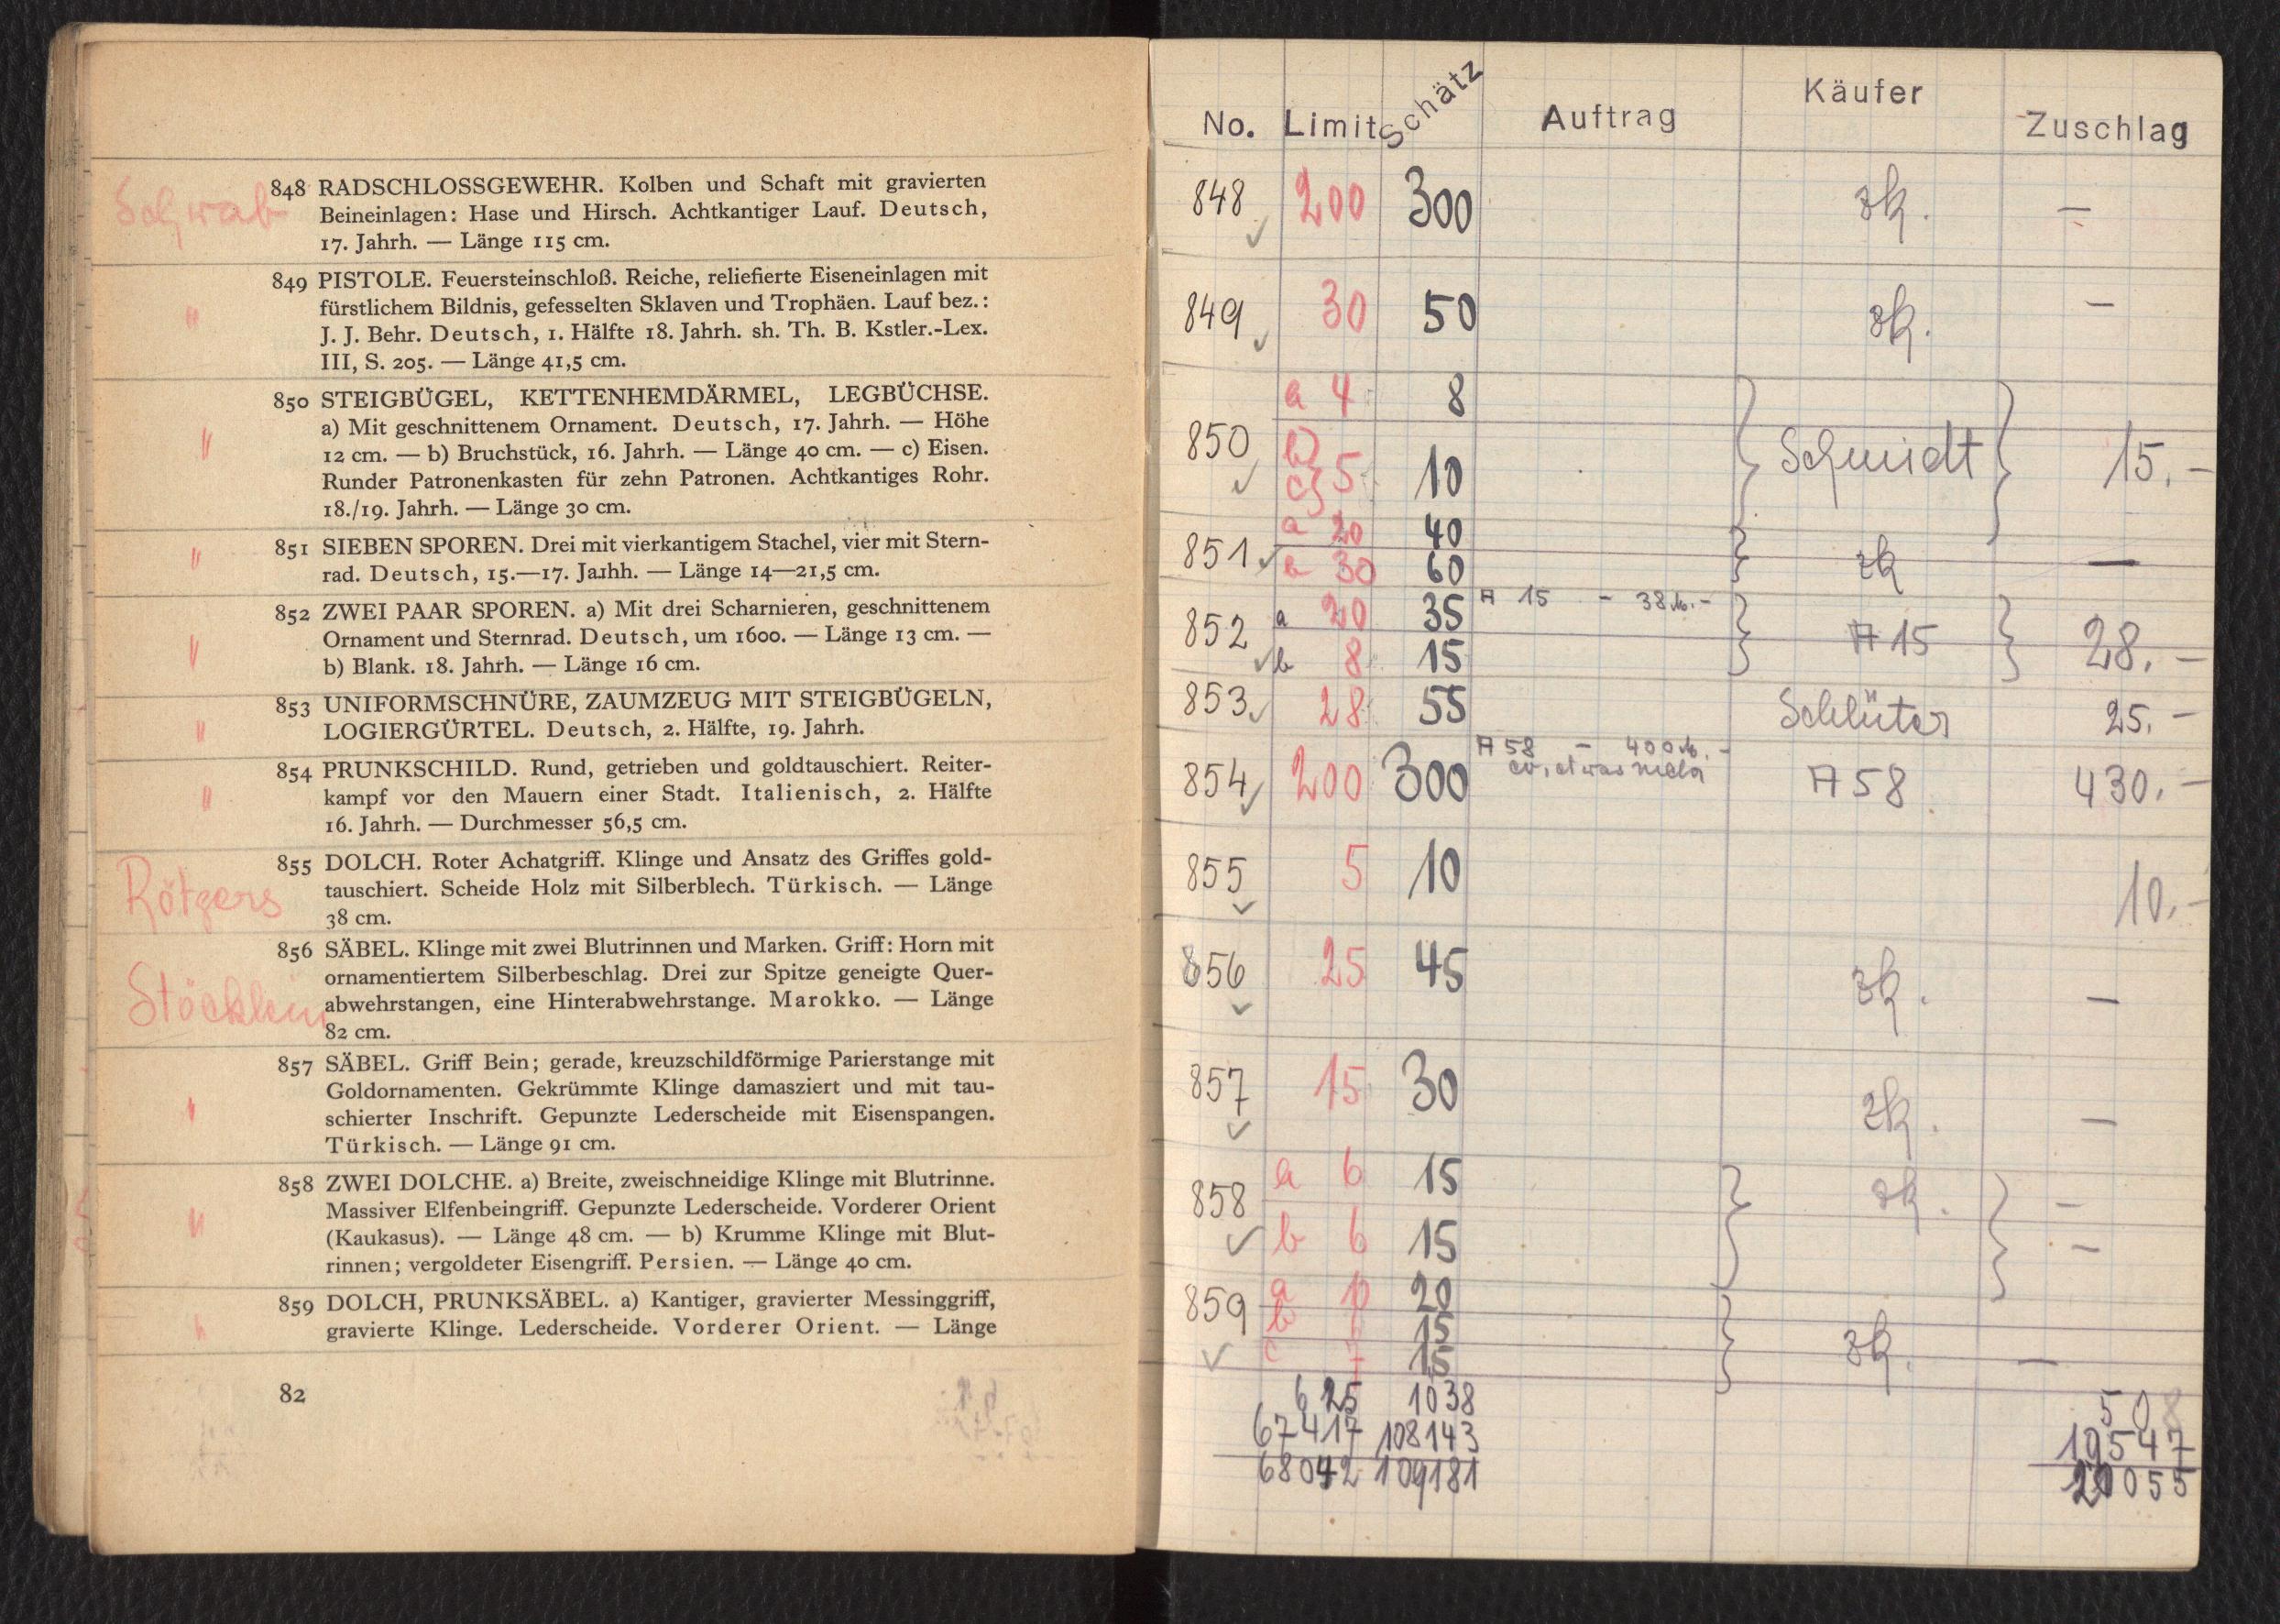 Schwab
848 RADSCHLOSSGEWEHR. Kolben und Schaft mit gravierten
Beineinlagen: Hase und Hirsch. Achtkantiger Lauf. Deutsch,
17. Jahrh. — Länge 115 cm.
"
849 PISTOLE. Feuersteinschloß. Reiche, reliefierte Eiseneinlagen mit
fürstlichem Bildnis, gefesselten Sklaven und Trophäen. Lauf bez.:
J. J. Behr. Deutsch, 1. Hälfte 18. Jahrh. sh. Th. B. Kstler.-Lex.
III, S. 205. — Länge 41,5 cm.
"
850 STEIGBÜGEL, KETTENHEMDÄRMEL, LEGBÜCHSE.
a) Mit geschnittenem Ornament. Deutsch, 17. Jahrh. — Höhe
12 cm. — b) Bruchstück, 16. Jahrh. — Länge 40 cm. — c) Eisen.
Runder Patronenkasten für zehn Patronen. Achtkantiges Rohr.
18./19. Jahrh. — Länge 30 cm.
"
851 SIEBEN SPOREN. Drei mit vierkantigem Stachel, vier mit Stern-
rad. Deutsch, 15.—17. Jahhh. — Länge 14—21,5 cm.
"
852 ZWEI PAAR SPOREN. a) Mit drei Scharnieren, geschnittenem
Ornament und Sternrad. Deutsch, um 1600. — Länge 13 cm. —
b) Blank. 18. Jahrh. — Länge 16 cm.
"
853 UNIFORMSCHNÜRE, ZAUMZEUG MIT STEIGBÜGELN,
LOGIERGÜRTEL. Deutsch, 2. Hälfte, 19. Jahrh.
"
854 PRUNKSCHILD. Rund, getrieben und goldtauschiert. Reiter-
kampf vor den Mauern einer Stadt. Italienisch, 2. Hälfte
16. Jahrh. — Durchmesser 56,5 cm.
Rötgers
855 DOLCH. Roter Achatgriff. Klinge und Ansatz des Griffes gold-
tauschiert. Scheide Holz mit Silberblech. Türkisch. — Länge
38 cm.
Stöcklein
856 SÄBEL. Klinge mit zwei Blutrinnen und Marken. Griff: Horn mit
ornamentiertem Silberbeschlag. Drei zur Spitze geneigte Quer-
abwehrstangen, eine Hinterabwehrstange. Marokko. — Länge
82 cm.
"
857 SÄBEL. Griff Bein; gerade, kreuzschildförmige Parierstange mit
Goldornamenten. Gekrümmte Klinge damasziert und mit tau-
schierter Inschrift. Gepunzte Lederscheide mit Eisenspangen.
Türkisch. — Länge 91 cm.
"
858 ZWEI DOLCHE. a) Breite, zweischneidige Klinge mit Blutrinne.
Massiver Elfenbeingriff. Gepunzte Lederscheide. Vorderer Orient
(Kaukasus). — Länge 48 cm. — b) Krumme Klinge mit Blut-
rinnen; vergoldeter Eisengriff. Persien. — Länge 40 cm.
"
859 DOLCH, PRUNKSÄBEL. a) Kantiger, gravierter Messinggriff,
gravierte Klinge. Lederscheide. Vorderer Orient. — Länge
82
No. Limit Schätz Auftrag Käufer Zuschlag
848 200 300 zk. —
849 30 50 zk. —
a 4 8
850 b) c) 5 10 Schmidt 15.—
a 20 40
851 b 30 60 zk —
852 a 20 35 A 15 — 38 M.— A 15 28.—
b 8 15
853 28 55 Schlüter 25.—
854 200 300 A 58 — 400 M.— A 58 430.—
ev. etwas mehr
855 5 10 10.—
856 25 45 zk. —
857 15 30 zk. —
858 a 6 15 zk. —
b 6 15 —
859 a 10 20
b 15 zk. —
c 7 15
625 1038 508
67417 108143 19547
68042 109181 20055